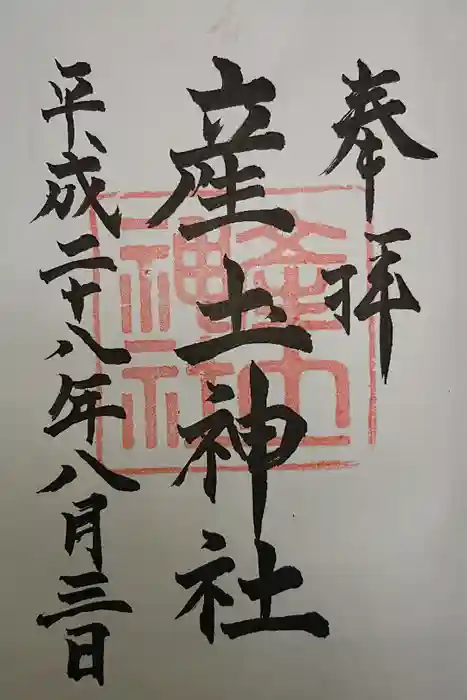 奉拝
産土神社
平成二十八年八月三日
産土神社